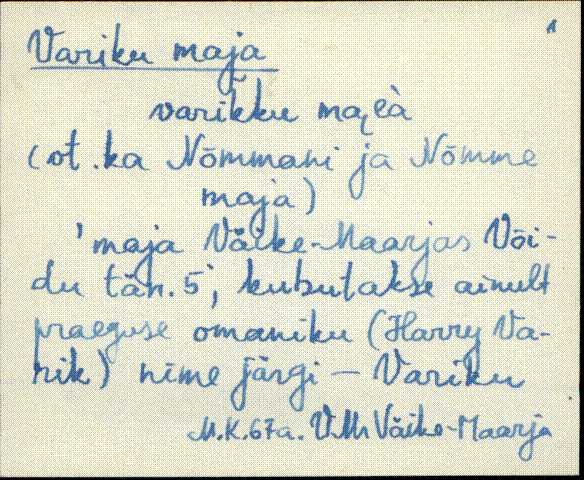 1
Variku maja
varikku
(vt. ka Nõmmani ja Nõmme
maja)
'maja Väike-Maarjas Või-
du tän. 5', kutsutakse ainult
praeguse omaniku (Harry Va-
rik) nime järgi — Variku
M.K. 67a. VMr Väike-Maarja